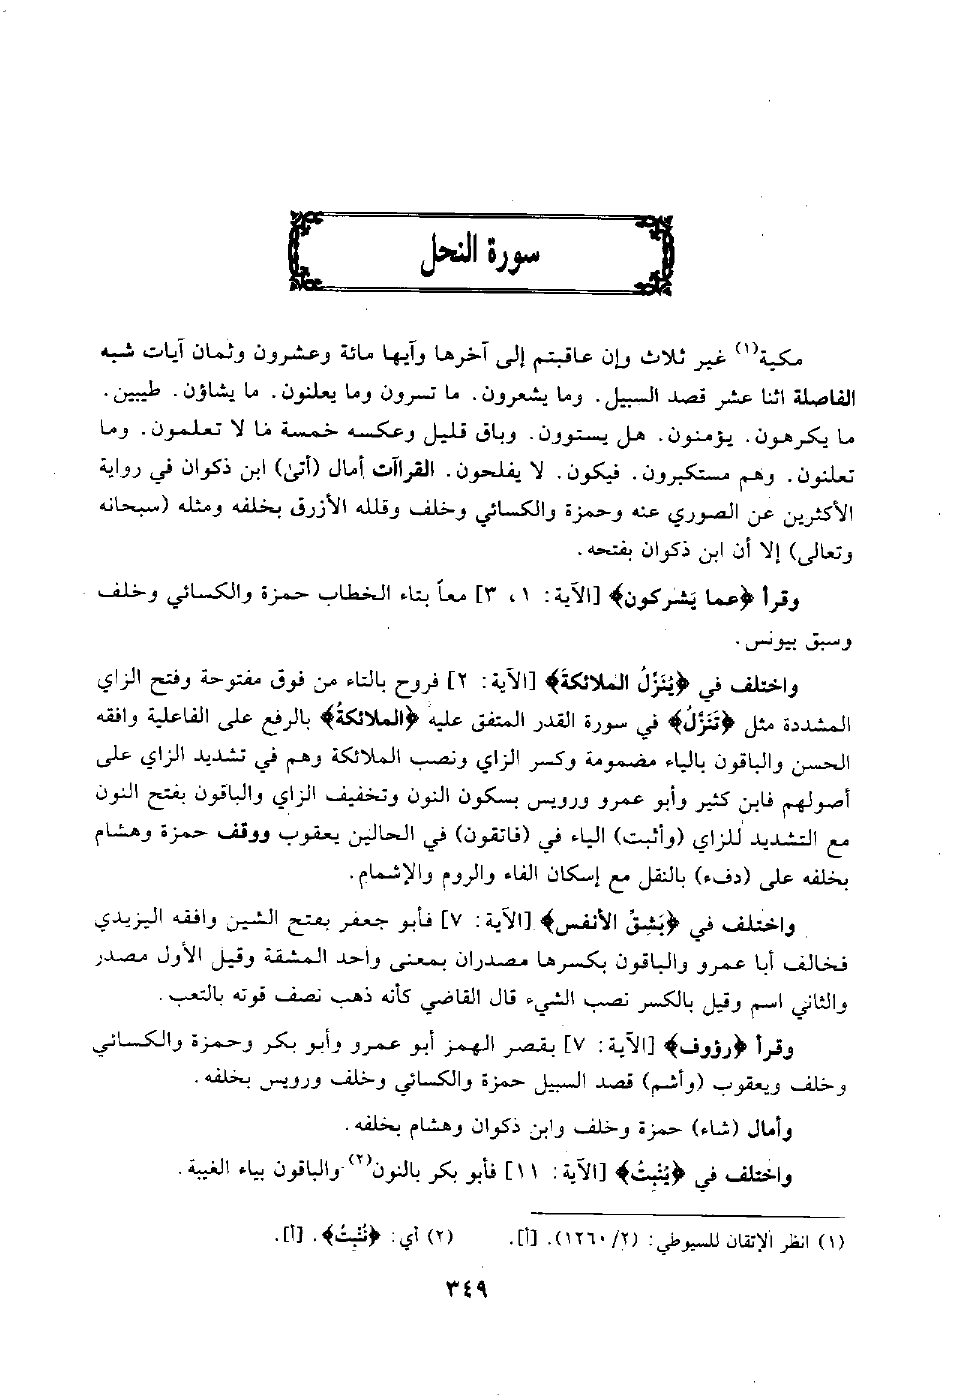 سورة النحل
مكية(١) غير ثلاث وإن عاقبتم إلى آخرها وآيها مائة وعشرون وثمان آيات شبه
الفاصلة اثنا عشر قصد السبيل. وما يشعرون. ما تسرون وما يعلنون. ما يشاؤن. طيبين.
ما يكرهون. يؤمنون. هل يستوون. وباق قليل وعكسه خمسة فا لا تعلمون. وما
تعلنون. وهم مستكبرون. فيكون. لا يفلحون. القراآت أمال (أتىٰ) ابن ذكوان في رواية
الأكثرين عن الصوري عنه وحمزة والكسائي وخلف وقلله الأزرق بخلفه ومثله (سبحانه
وتعالى) إلا أن ابن ذكوان بفتحه.
وقرأ ﴿عما يَشركون﴾ [الآية: ١، ٣] معاً بتاء الخطاب حمزة والكسائي وخلف
وسبق بيونس.
واختلف في ﴿يُنَزِّلُ الملائكةَ﴾ [الآية: ٢] فروح بالتاء من فوق مفتوحة وفتح الزاي
المشددة مثل ﴿تَنَزَّلُ﴾ في سورة القدر المتفق عليه ﴿الملائكةُ﴾ بالرفع على الفاعلية وافقه
الحسن والباقون بالياء مضمومة وكسر الزاي ونصب الملائكة وهم في تشديد الزاي على
أصولهم فابن كثير وأبو عمرو ورويس بسكون النون وتخفيف الزاي والباقون بفتح النون
مع التشديد للزاي (وأثبت) الياء في (فاتقون) في الحالين يعقوب ووقف حمزة وهشام
بخلفه على (دفء) بالنقل مع إسكان الفاء والروم والإشمام.
واختلف في ﴿بَشقِّ الأنفس﴾ [الآية: ٧] فأبو جعفر بفتح الشين وافقه اليزيدي
فخالف أبا عمرو والباقون بكسرها مصدران بمعنى واحد المشقة وقيل الأول مصدر
والثاني اسم وقيل بالكسر نصب الشيء قال القاضي كأنه ذهب نصف قوته بالتعب.
وقرأ ﴿رؤوف﴾ [الآية: ٧] بقصر الهمز أبو عمرو وأبو بكر وحمزة والكسائي
وخلف ويعقوب (وأشم) قصد السبيل حمزة والكسائي وخلف ورويس بخلفه.
وأمال (شاء) حمزة وخلف وابن ذكوان وهشام بخلفه.
واختلف في ﴿يُنْبِتُ﴾ [الآية: ١١] فأبو بكر بالنون(٢) والباقون بياء الغيبة.
(١) انظر الإتقان للسيوطي: (١٢٦٠/٢). [أ]. (٢) أي: ﴿نُنْبِتُ﴾. [أ].
٣٤٩